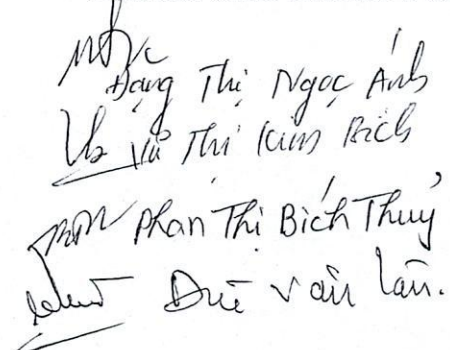 Đặng Thị Ngọc Ánh
Vũ Thị Kim Bích
Phan Thị Bích Thuỷ
Văn Lân.